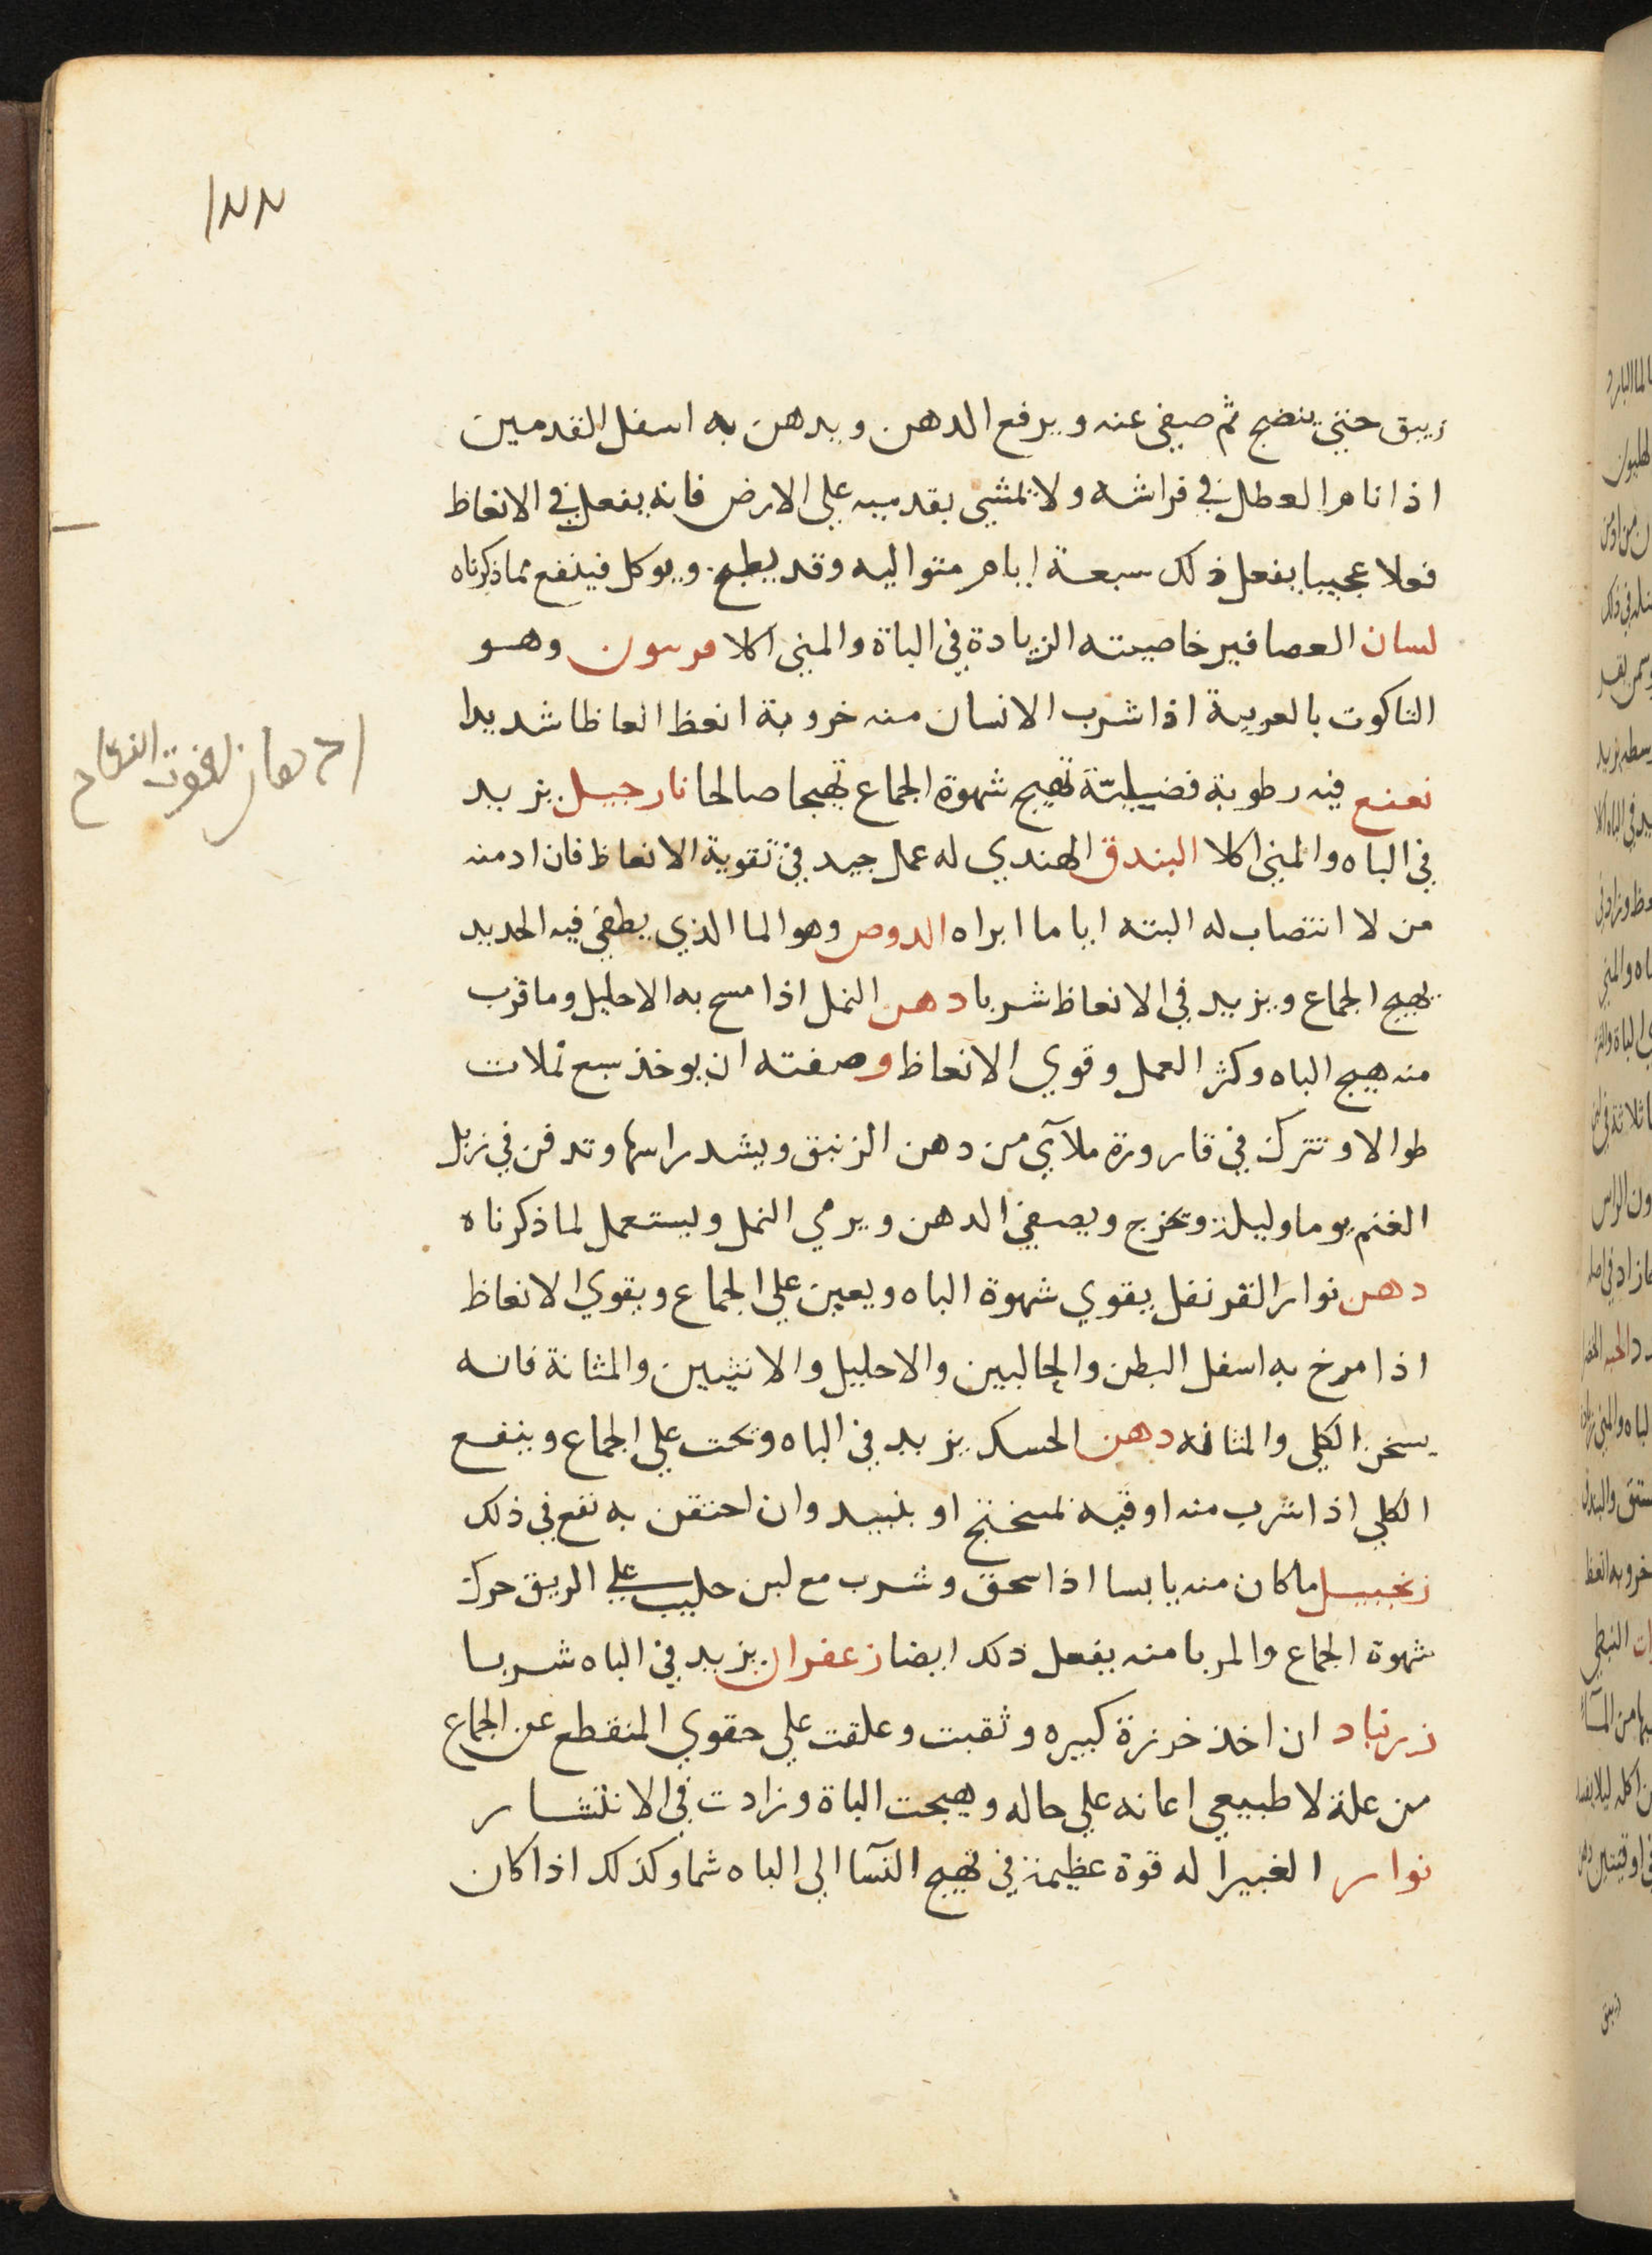 ١٢٢
زيبق حتي ينضج ثم صيفى عنه ويرفع الدهن ويدهن به اسفل القدمين
اذا نام العطل في فراشه ولا يمشي بقدميه علي الارض فانه يفعل في الانعاظ
فعلا عجيبا يفعل ذلك سبعة ايام متواليه وقد يطبخ ويوكل فينفع مما ذكرناه
لسان العصافير خاصيته الزيادة في الباة والمني اكلا وهو
التاكوت بالعربية اذا شرب الانسان منه خروبة انعظ انعاظا شديدا
نعنع فيه رطوبة فضيليّة تهيج شهوة الجماع تهيجا صالحا نارجيل يزيد
في الباه والمني اكلا البندق الهندي له عمل جيد في تقوية الانعاظ فان ادمنه
من لا انتصاب له البته اياما ابراه الدوص وهو الما الذي يطفي فيه الحديد
يهيج الجماع ويزيد في الانعاظ شربا دهن النمل اذا مسح به الاحليل وما قرب
منه هيج الباه وكثر العمل وقوي الانعاظ وصفته ان يوخذ سبع نملات
طوالا وتترك في قارورة ملآي من دهن الزنبق ويشد راسها وتدفن في زبل
الغنم يوما وليلة وتخرج ويصفي الدهن ويرمي النمل ويستعمل لما ذكرناه
دهن نوار القرنفل يقوي شهوة الباه ويعين علي الجماع ويقوي الانعاظ
اذا مرخ به اسفل البطن والحالبين والاحليل والانثيين والمثانة فانه
يسخن الكلي والمثانه دهن الحسك يزيد في الباه وتحت علي الجماع وينفع
الكلي اذا شرب منه اوقيه بمسختج او بنبيد وان احتقن به نفع في ذلك
زنجبيل ما كان منه يابسا اذا سحق وشرب مع لبن حليب علي الريق حرك
شهوة الجماع والمربا منه يفعل ذلك ايضا زعفران يزيد في الباه شربا
زرنباد ان اخذ خرزة كبيره وثقبت وعلقت علي حقوي المنقطع عن الجماع
من علة لا طبيعي اعانه علي حاله وهيجت الباة وزادت في الانتشار
نوار الغبيرا له قوة عظيمة في تهيج النسآ الي الباه شما وكذلك اذا كان